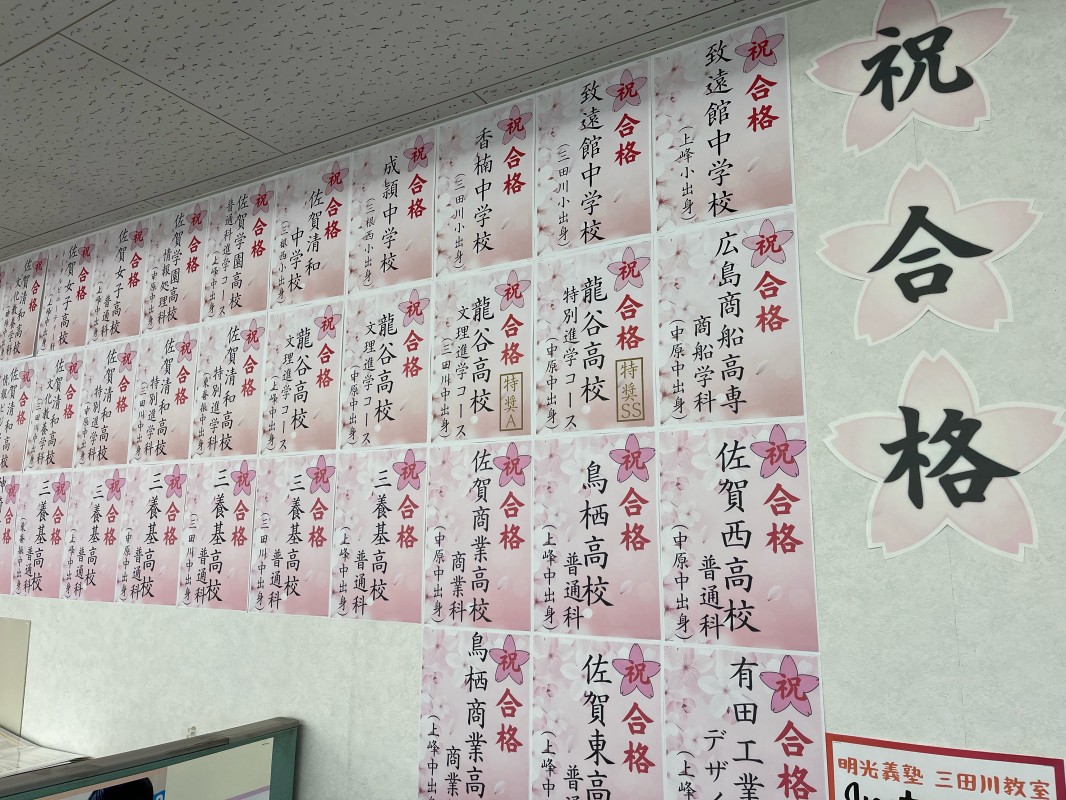 祝
合
格
祝 合格
致遠館中学校
(上峰小出身)
祝 合格
致遠館中学校
(三田川小出身)
祝 合格
香楠中学校
(三田川小出身)
祝 合格
成穎中学校
(三根西小出身)
祝 合格
佐賀清和
中学校
(三根西小出身)
祝 合格
佐賀学園高校
普通科進学コース
(上峰中出身)
祝 合格
佐賀学園高校
情報処理科
(中原中出身)
祝 合格
佐賀女子高校
普通科
(上峰中出身)
祝 合格
佐賀女子高校
祝 合格
佐賀清和高校
文化教養学科
祝 合格
広島商船高専
商船学科
(中原中出身)
祝 合格
龍谷高校
特別進学コース
(中原中出身)
特奨SS
祝 合格
龍谷高校
文理進学コース
(三田川中出身)
特奨A
祝 合格
龍谷高校
文理進学コース
(中原中出身)
祝 合格
龍谷高校
文理進学コース
(上峰中出身)
祝 合格
佐賀清和高校
特別進学科
(東脊振中出身)
祝 合格
佐賀清和高校
特別進学科
(三田川中出身)
祝 合格
佐賀清和高校
特別進学科
(上峰中出身)
祝 合格
佐賀清和高校
文化教養学科
(三田川中出身)
祝 合格
佐賀清和高校
祝 合格
佐賀西高校
普通科
(中原中出身)
祝 合格
鳥栖高校
普通科
(上峰中出身)
祝 合格
佐賀商業高校
商業科
(中原中出身)
祝 合格
三養基高校
普通科
(上峰中出身)
祝 合格
三養基高校
普通科
(三田川中出身)
祝 合格
三養基高校
普通科
(三田川中出身)
祝 合格
三養基高校
普通科
(中原中出身)
祝 合格
三養基高校
普通科
(上峰中出身)
祝 合格
三養基高校
普通科
(東脊振中出身)
合格
祝 合格
有田工業
デザイ
(上峰
祝 合格
佐賀東高
普通
(上峰中
祝 合格
鳥栖商業高
商業
(上峰中出
明光義塾 三田川教室